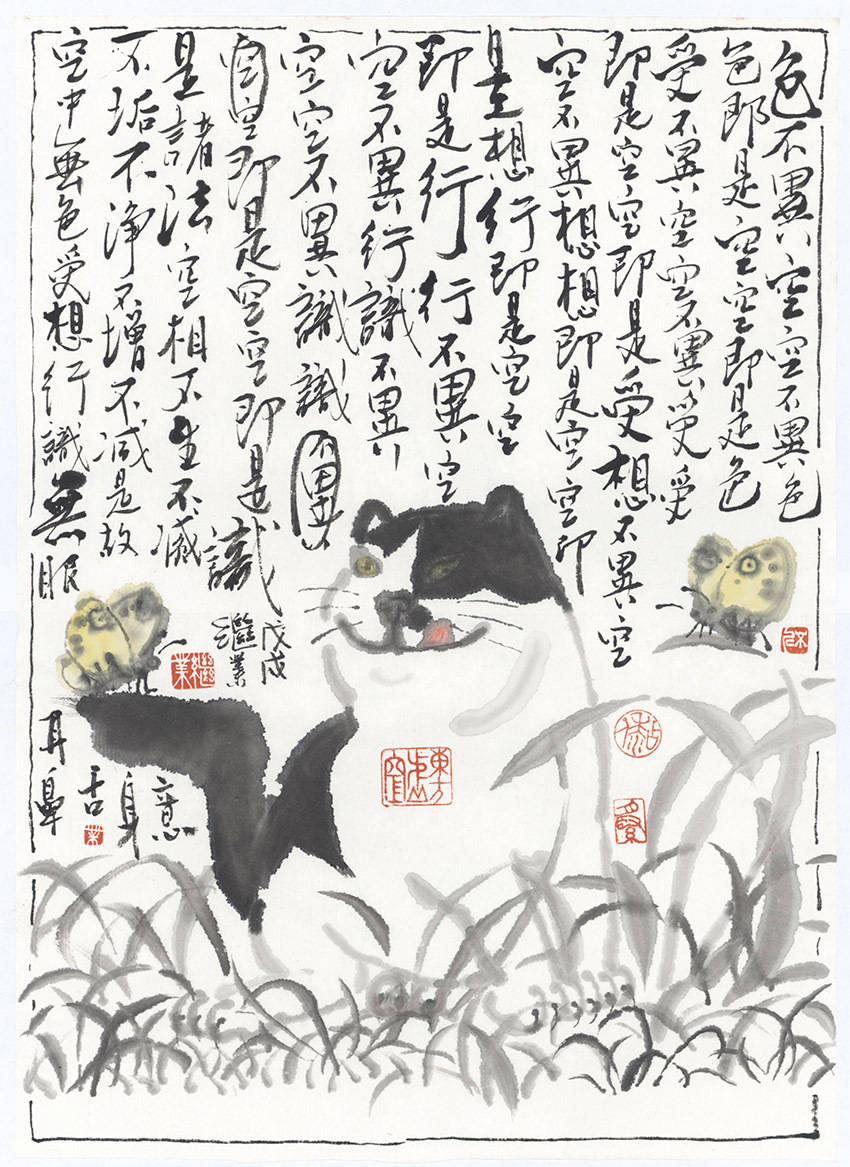 色不異空空不異色
色即是空空即是色
受不異空空不異受受
即是空空即是受想不異空
空不異想想即是空空即
是想行即是空空
即是行行不異空
空不異行識不異
空空不異識識不異
空空即是空空即是識
是諸法空相不生不滅
不垢不淨不增不减是故
空中無色受想行識無眼
耳鼻
舌身意
戊戌
繼業
繼業
業